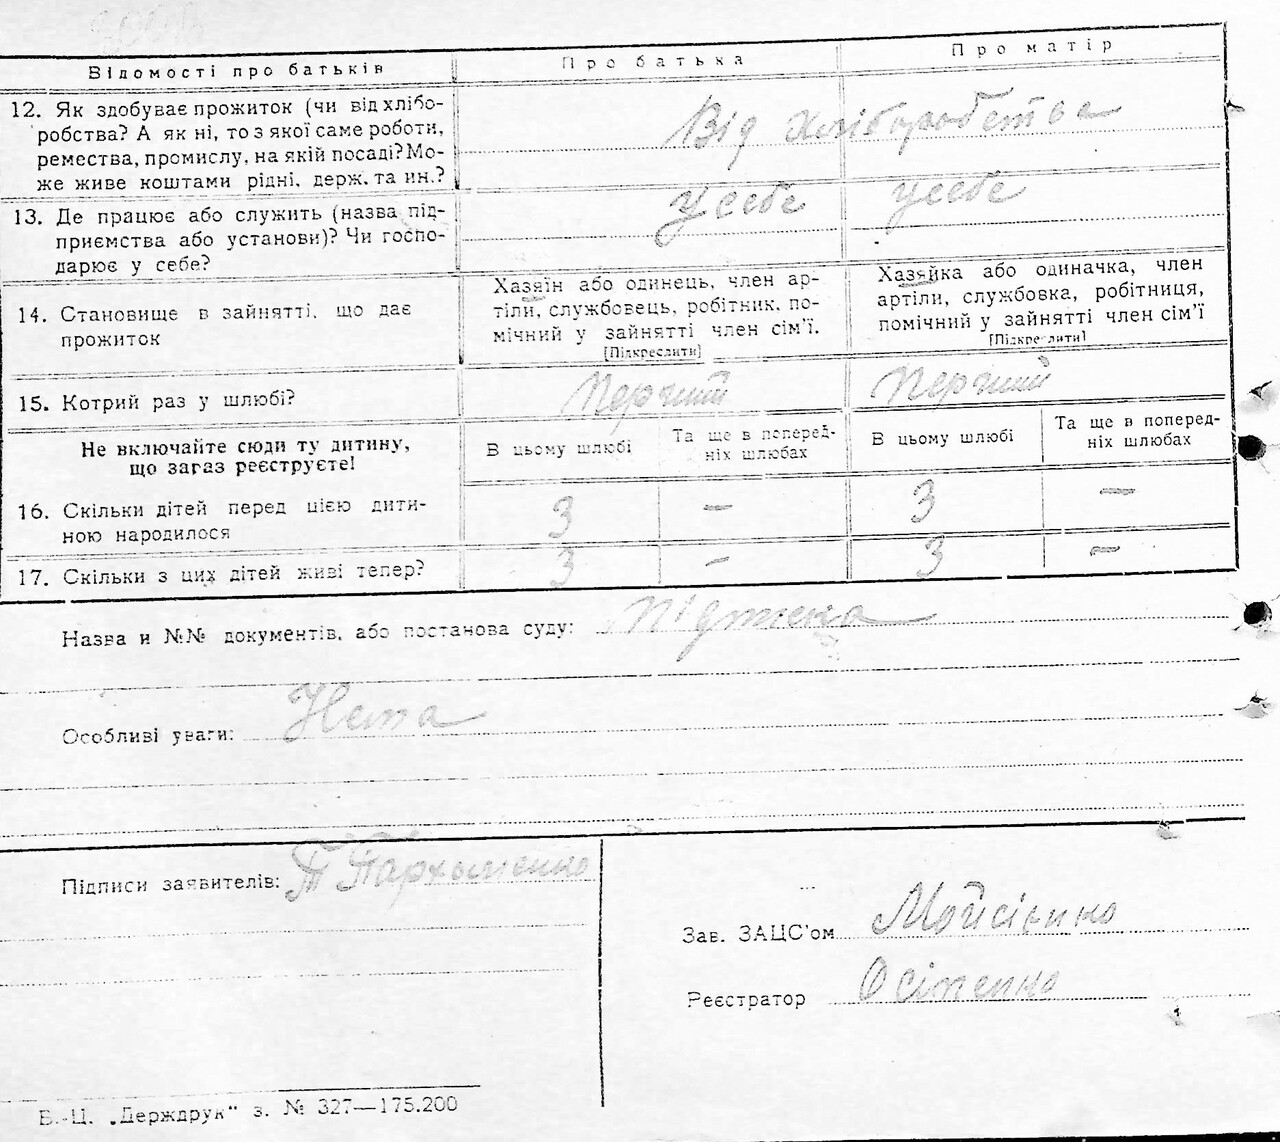 Відомості про батьків
Про батька
Про матір
12. Як здобуває прожиток (чи від хлібо-
робства? А як ні, то з якої саме роботи,
ремества, промислу, на якій посаді? Мо-
же живе коштами рідні, держ. та ин.?
Від хліборобства
13. Де працює або служить (назва під-
приємства або установи)? Чи госпо-
дарює у себе?
у себе
у себе
14. Становище в зайнятті, що дає
прожиток
Хазяїн або одинець, член ар-
тіли, службовець, робітник, по-
мічний у зайнятті член сім'ї.
[Підкреслити]
Хазяйка або одиначка, член
артіли, службовка, робітниця,
помічний у зайнятті член сім'ї
[Підкреслити]
15. Котрий раз у шлюбі?
Перший
Перший
Не включайте сюди ту дитину,
що загаз реєструєте!
В цьому шлюбі
Та ще в поперед-
ніх шлюбах
В цьому шлюбі
Та ще в поперед-
ніх шлюбах
16. Скільки дітей перед цією дити-
ною народилося
3
—
3
—
17. Скільки з цих дітей живі тепер?
3
—
3
—
Назва и №№ документів, або постанова суду:
Особливі уваги:
Нема
Підписи заявителів:
Т Пархоменко
Зав. ЗАЦС'ом
Мойсієнко
Реєстратор
Осіпенко
Б.-Ц. „Держдрук" з. № 327—175.200